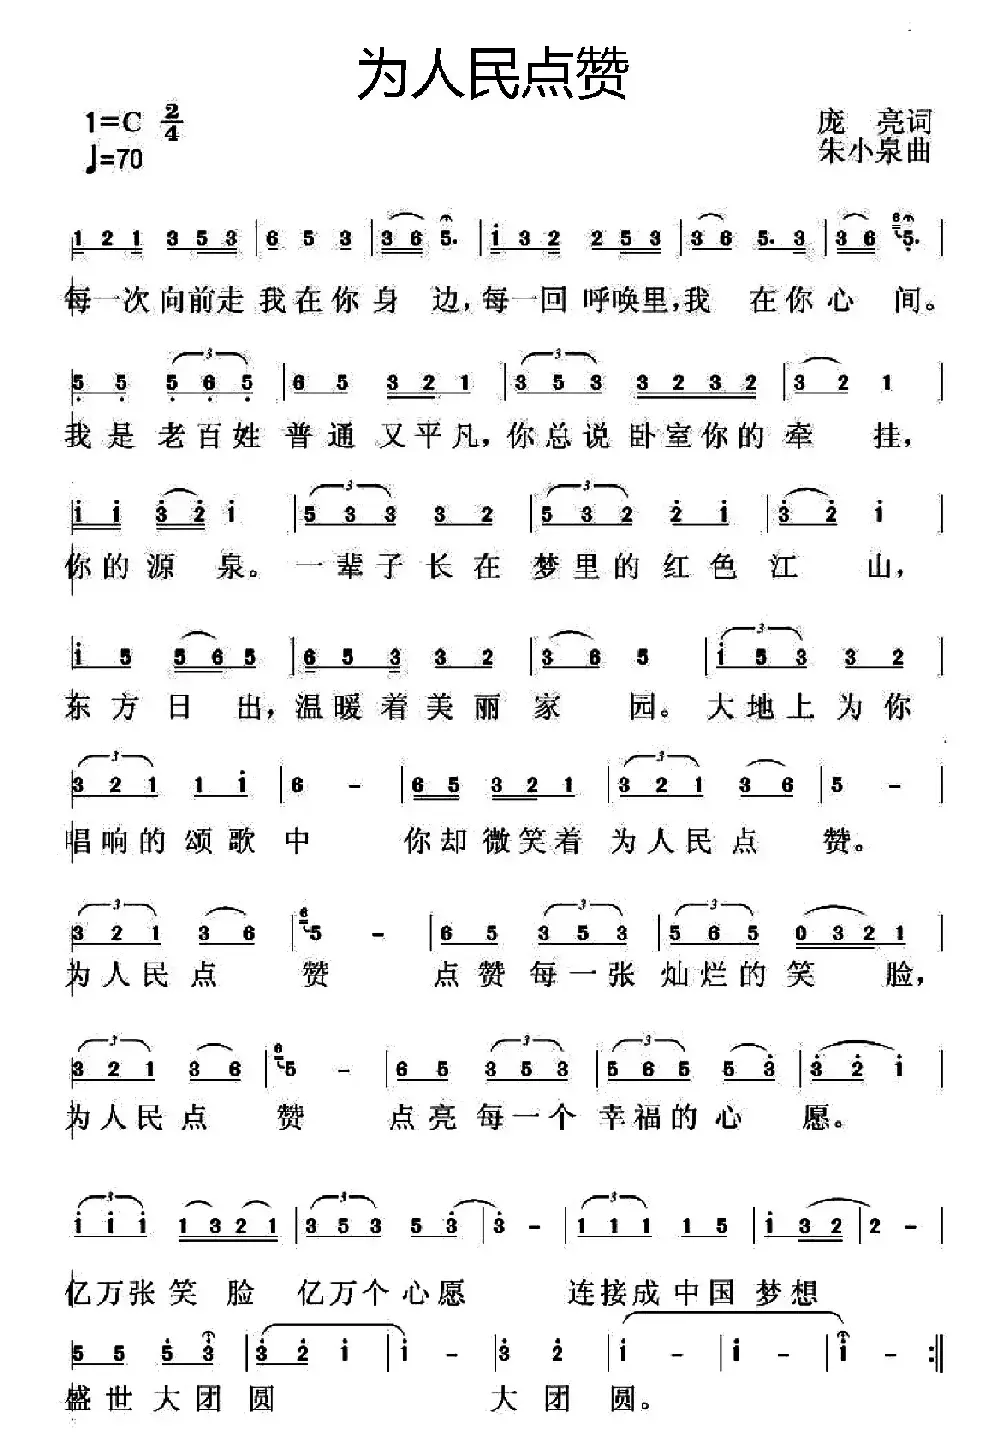 为人民点赞
1=C 2/4
♩=70
庞 亮词
朱小泉曲
1 2 1 3 5 3 | 6 5 3 | 3 6 5. | i 3 2 2 5 3 | 3 6 5. 3 | 3 6 6 5. |
每一次向前走我在你身 边,每一回呼唤里,我 在你心 间。
5 5 5 6 5 | 6 5 3 2 1 | 3 5 3 3 2 3 2 | 3 2 1 |
我是 老百姓 普通 又平凡,你总说卧室你的牵 挂,
i i 3 2 i | 5 3 3 3 2 | 5 3 2 2 i | 3 2 i |
你的源 泉。一辈子长在梦里的红色江 山,
i 5 5 6 5 | 6 5 3 3 2 | 3 6 5 | i 5 3 3 2 |
东方日 出,温暖着美丽家 园。大地上为你
3 2 1 1 i | 6 - | 6 5 3 2 1 | 3 2 1 3 6 | 5 - |
唱响的颂歌中 你却微笑着 为人民点 赞。
3 2 1 3 6 | 6 5 - | 6 5 3 5 3 | 5 6 5 0 3 2 1 |
为人民点 赞 点赞每一张 灿烂的笑 脸,
3 2 1 3 6 | 6 5 - | 6 5 3 5 3 | 5 6 5 5 3 | 3 2 i |
为人民点 赞 点亮每一个 幸福的心 愿。
i i i 1 3 2 1 | 3 5 3 5 3 | 3 - | 1 1 1 1 5 | i 3 2 | 2 - |
亿万张笑 脸 亿万个心愿 连接成中国梦想
5 5 5 3 | 3 2 i | i - | 3 2 | i - | i - | i - :||
盛世大团圆 大团圆。